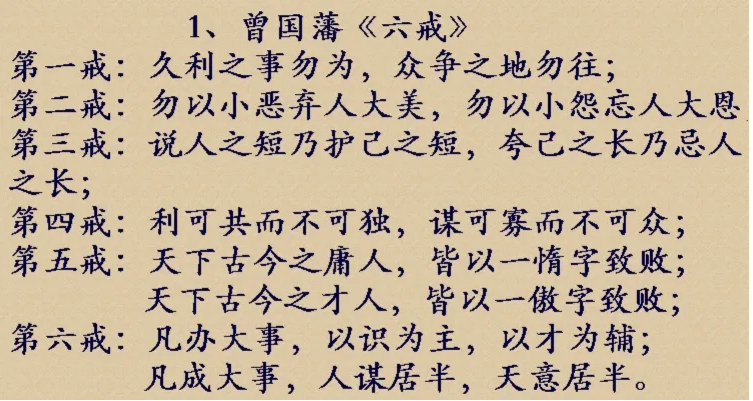 1、曾国藩《六戒》
第一戒：久利之事勿为，众争之地勿往；
第二戒：勿以小恶弃人大美，勿以小怨忘人大恩
第三戒：说人之短乃护己之短，夸己之长乃忌人
之长；
第四戒：利可共而不可独，谋可寡而不可众；
第五戒：天下古今之庸人，皆以一惰字致败；
天下古今之才人，皆以一傲字致败；
第六戒：凡办大事，以识为主，以才为辅；
凡成大事，人谋居半，天意居半。